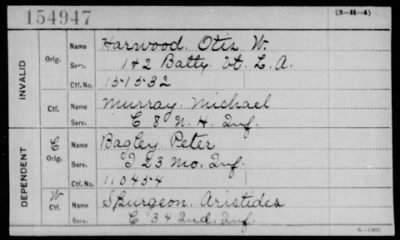 154947 (3-11-4)
INVALID
Orig. Name Harwood, Otis W.
Serv. 1+2 Batty. Vt. L. A.
Ctf. No. 151532
Ctf. Name Murray, Michael
C 8 N. H. Inf.
DEPENDENT
C Orig. Name Bagley Peter
Serv. I 23 Mo. Inf.
Ctf. No. 110454
W Ctf. Name Spurgeon, Aristides
Serv. C 34 Ind. Inf.